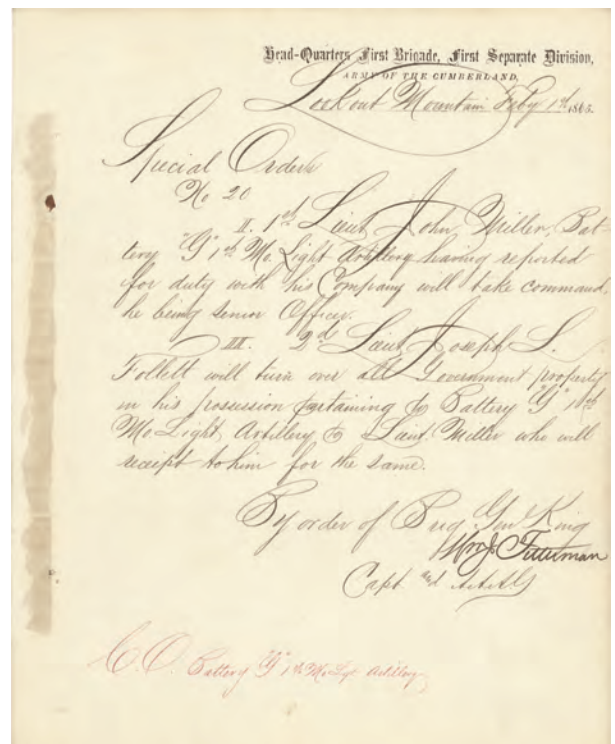 Head-Quarters First Brigade, First Separate Division,
ARMY OF THE CUMBERLAND,
Lookout Mountain Feby 1st 1865.
Special Orders
No 20
II. 1st Lieut John Miller, Bat-
tery "G" 1st Mo. Light Artillery having reported
for duty with his Company will take command,
he being senior Officer.
III. 2d Lieut Joseph L.
Follett will turn over all Government property
in his possession pertaining to Battery "G" 1st
Mo. Light Artillery to Lieut. Miller who will
receipt to him for the same.
By order of Brig. Gen King
Wm J.
Capt and A.A.A.G
C.O. Battery "G" 1st Mo Lgt Artillery